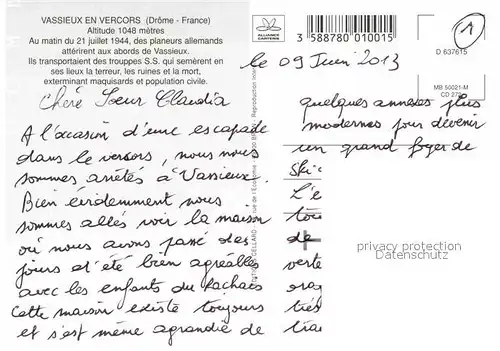 VASSIEUX EN VERCORS (Drôme - France)
Altitude 1048 mètres
Au matin du 21 juillet 1944, des planeurs allemands
attérirent aux abords de Vassieux.
Ils transportaient des trouppes S.S. qui semèrent en
ses lieux la terreur, les ruines et la mort,
exterminant maquisards et population civile.
ALLIANCE
CARTERIE
3 588780 010015
D 637615
1
MB 50021-M
le 09 Juin 2013
Chère Soeur Claudia
A l'occasion d'une escapade
dans le vercors, nous nous
sommes arrêtés à Vassieux.
Bien évidemment nous
sommes allés voir la maison
où nous avons passé des
jours d'été bien agréables
avec les enfants du Rachais
Cette maison existe toujours
et s'est même agrandie de
quelques annexes plus
modernes pour devenir
un grand foyer de
Ski
L'é
tou
de
verte
orag
très
privacy protection
Datenschutz